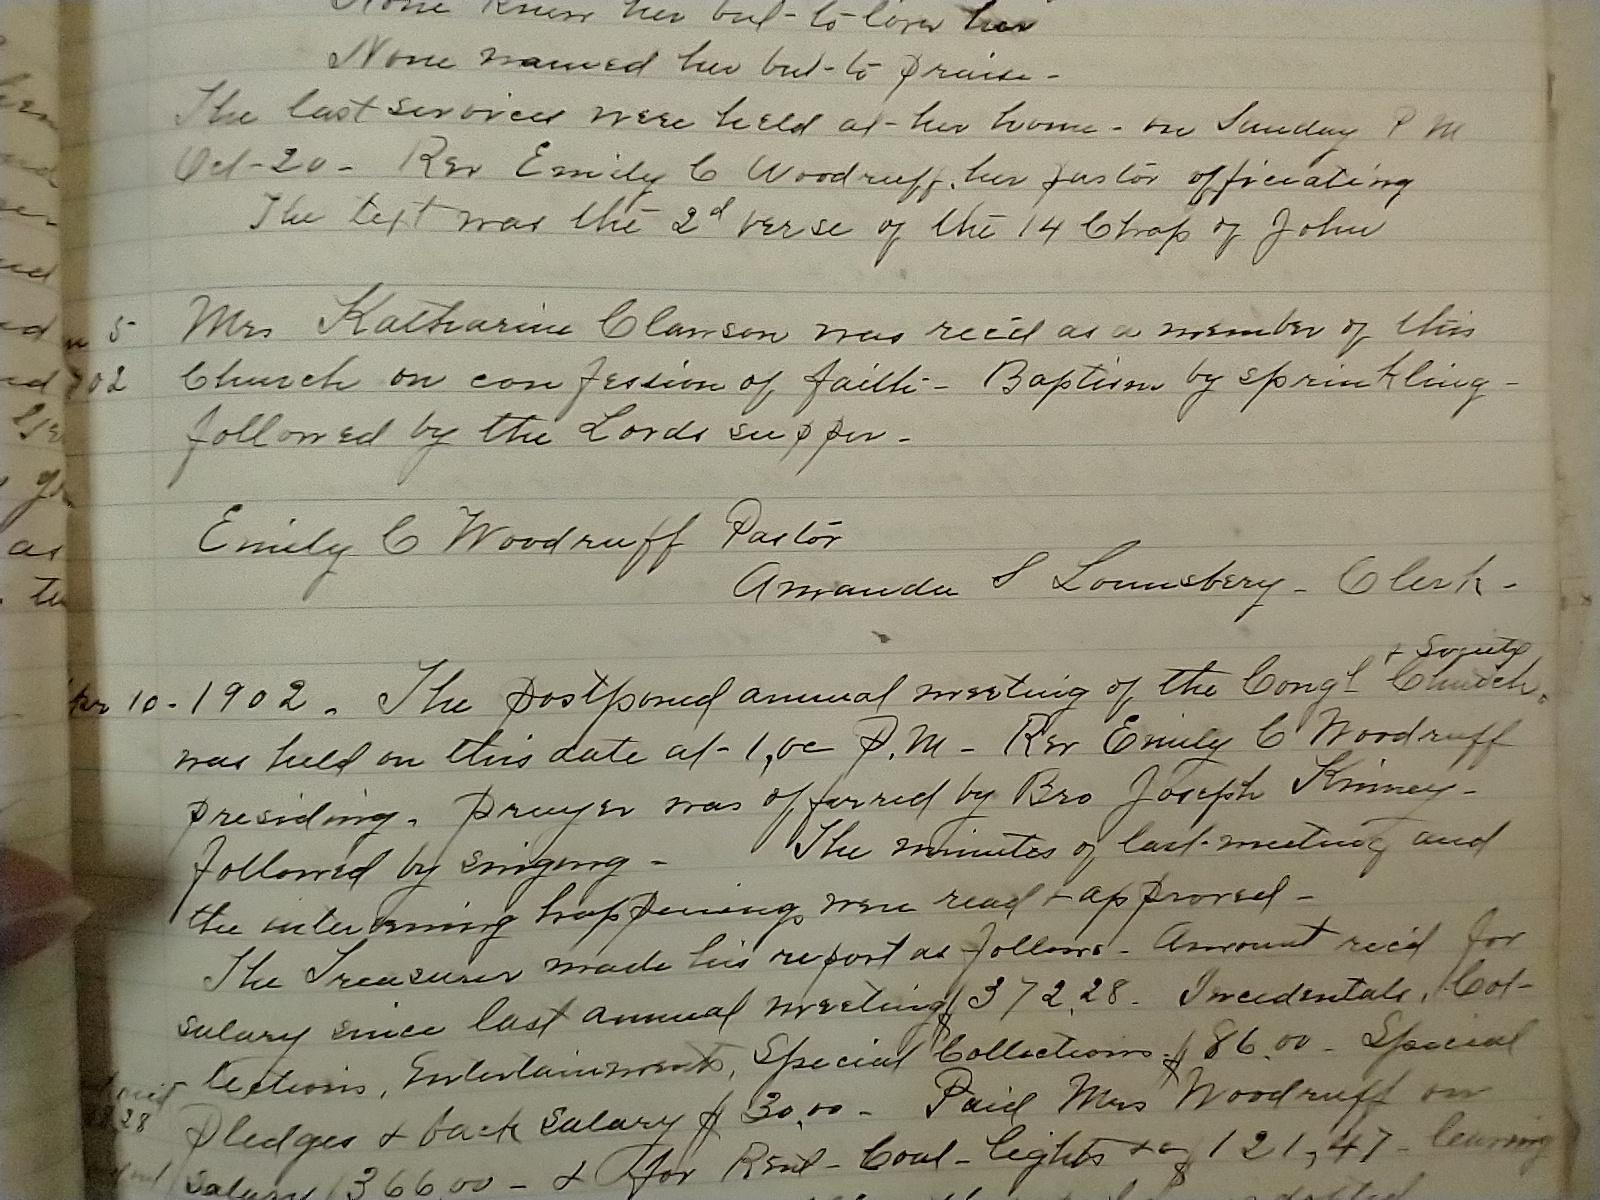 None knew her but to love her
None named her but to praise -
The last services were held at her home - on Sunday P M
Oct - 20 - Rev Emily C Woodruff, her pastor officiating
The text was the 2d verse of the 14 Chap of John
5 Mrs Katharine Clawson was rec'd as a member of this
02 Church on confession of faith - Baptism by sprinkling -
followed by the Lords supper -
Emily C Woodruff Pastor
Amanda S Lounsbery - Clerk -
+ Society
10 - 1902. The postponed annual meeting of the Congl Church
was held on this date at 1,00 P.M - Rev Emily C Woodruff
presiding. prayer was offered by Bro Joseph Kinney -
followed by singing - The minutes of last meeting and
the intervening happenings were read + approved -
The Treasurer made his report as follows - Amount rec'd for
salary since last annual meeting $372.28 - Incedentals, Col-
lections, Entertainments, Special Collections $86.00 - Special
Pledges & back salary $30.00 - Paid Mrs Woodruff on
28 salary $366.00 - & for Rent - Coal - lights + $121,47 - leaving